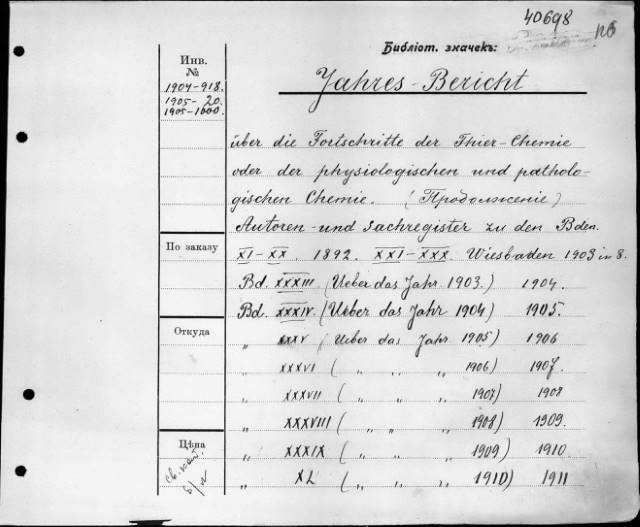 40698
116
Библіот. значекъ:
Инв.
№
1904-918.
1905-20.
1905-1000.
Jahres-Bericht
über die Fortschritte der Thier-Chemie
oder der physiologischen und patholo-
gischen Chemie. (Продолженіе)
Autoren- und Sachregister zu den Bden.
По заказу
XI-XX. 1892. XXI-XXX. Wiesbaden 1903 in 8.
Bd. XXXIII. (Ueber das Jahr 1903.) 1904.
Bd. XXXIV. (Ueber das Jahr 1904) 1905.
Откуда
„ XXXV (Ueber das Jahr 1905) 1906
„ XXXVI ( „ „ „ 1906) 1907.
„ XXXVII ( „ „ „ 1907) 1908
„ XXXVIII ( „ „ „ 1908) 1909.
Цѣна
„ XXXIX ( „ „ „ 1909) 1910.
„ XL ( „ „ „ 1910) 1911